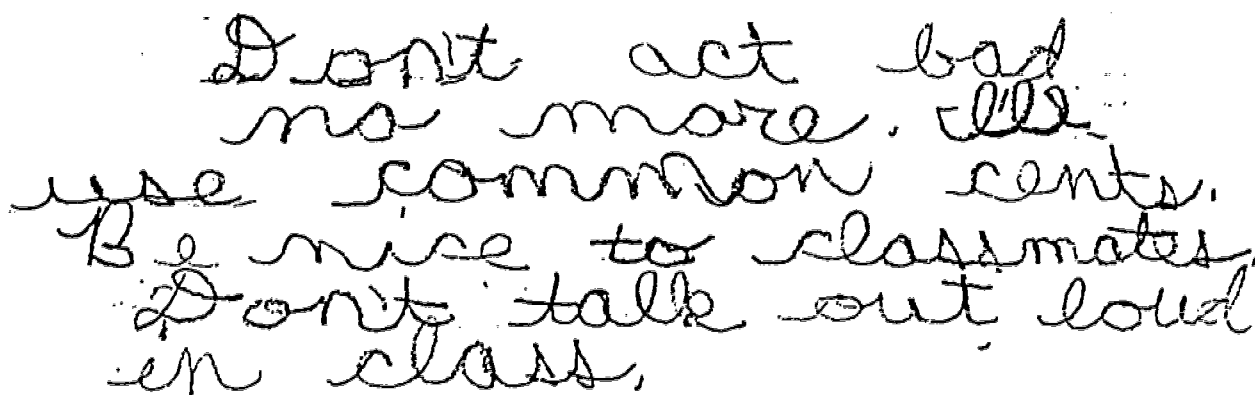 Don't act bad
no more. I'll
use common cents.
Be nice to classmates.
Don't talk out loud
in class.